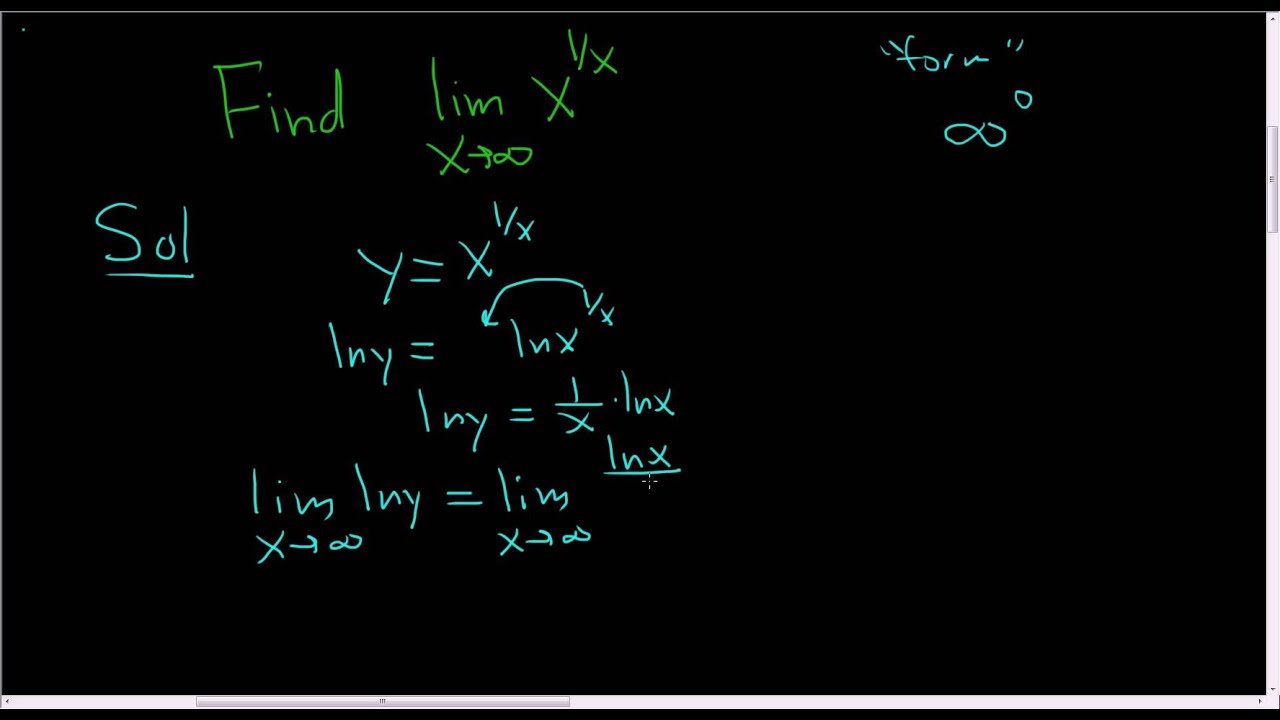 Find lim x→∞ x^{1/x}
"form"
∞^0
Sol
y = x^{1/x}
ln y = ln x^{1/x}
ln y = 1/x · ln x
lim x→∞ ln y = lim x→∞ ln x